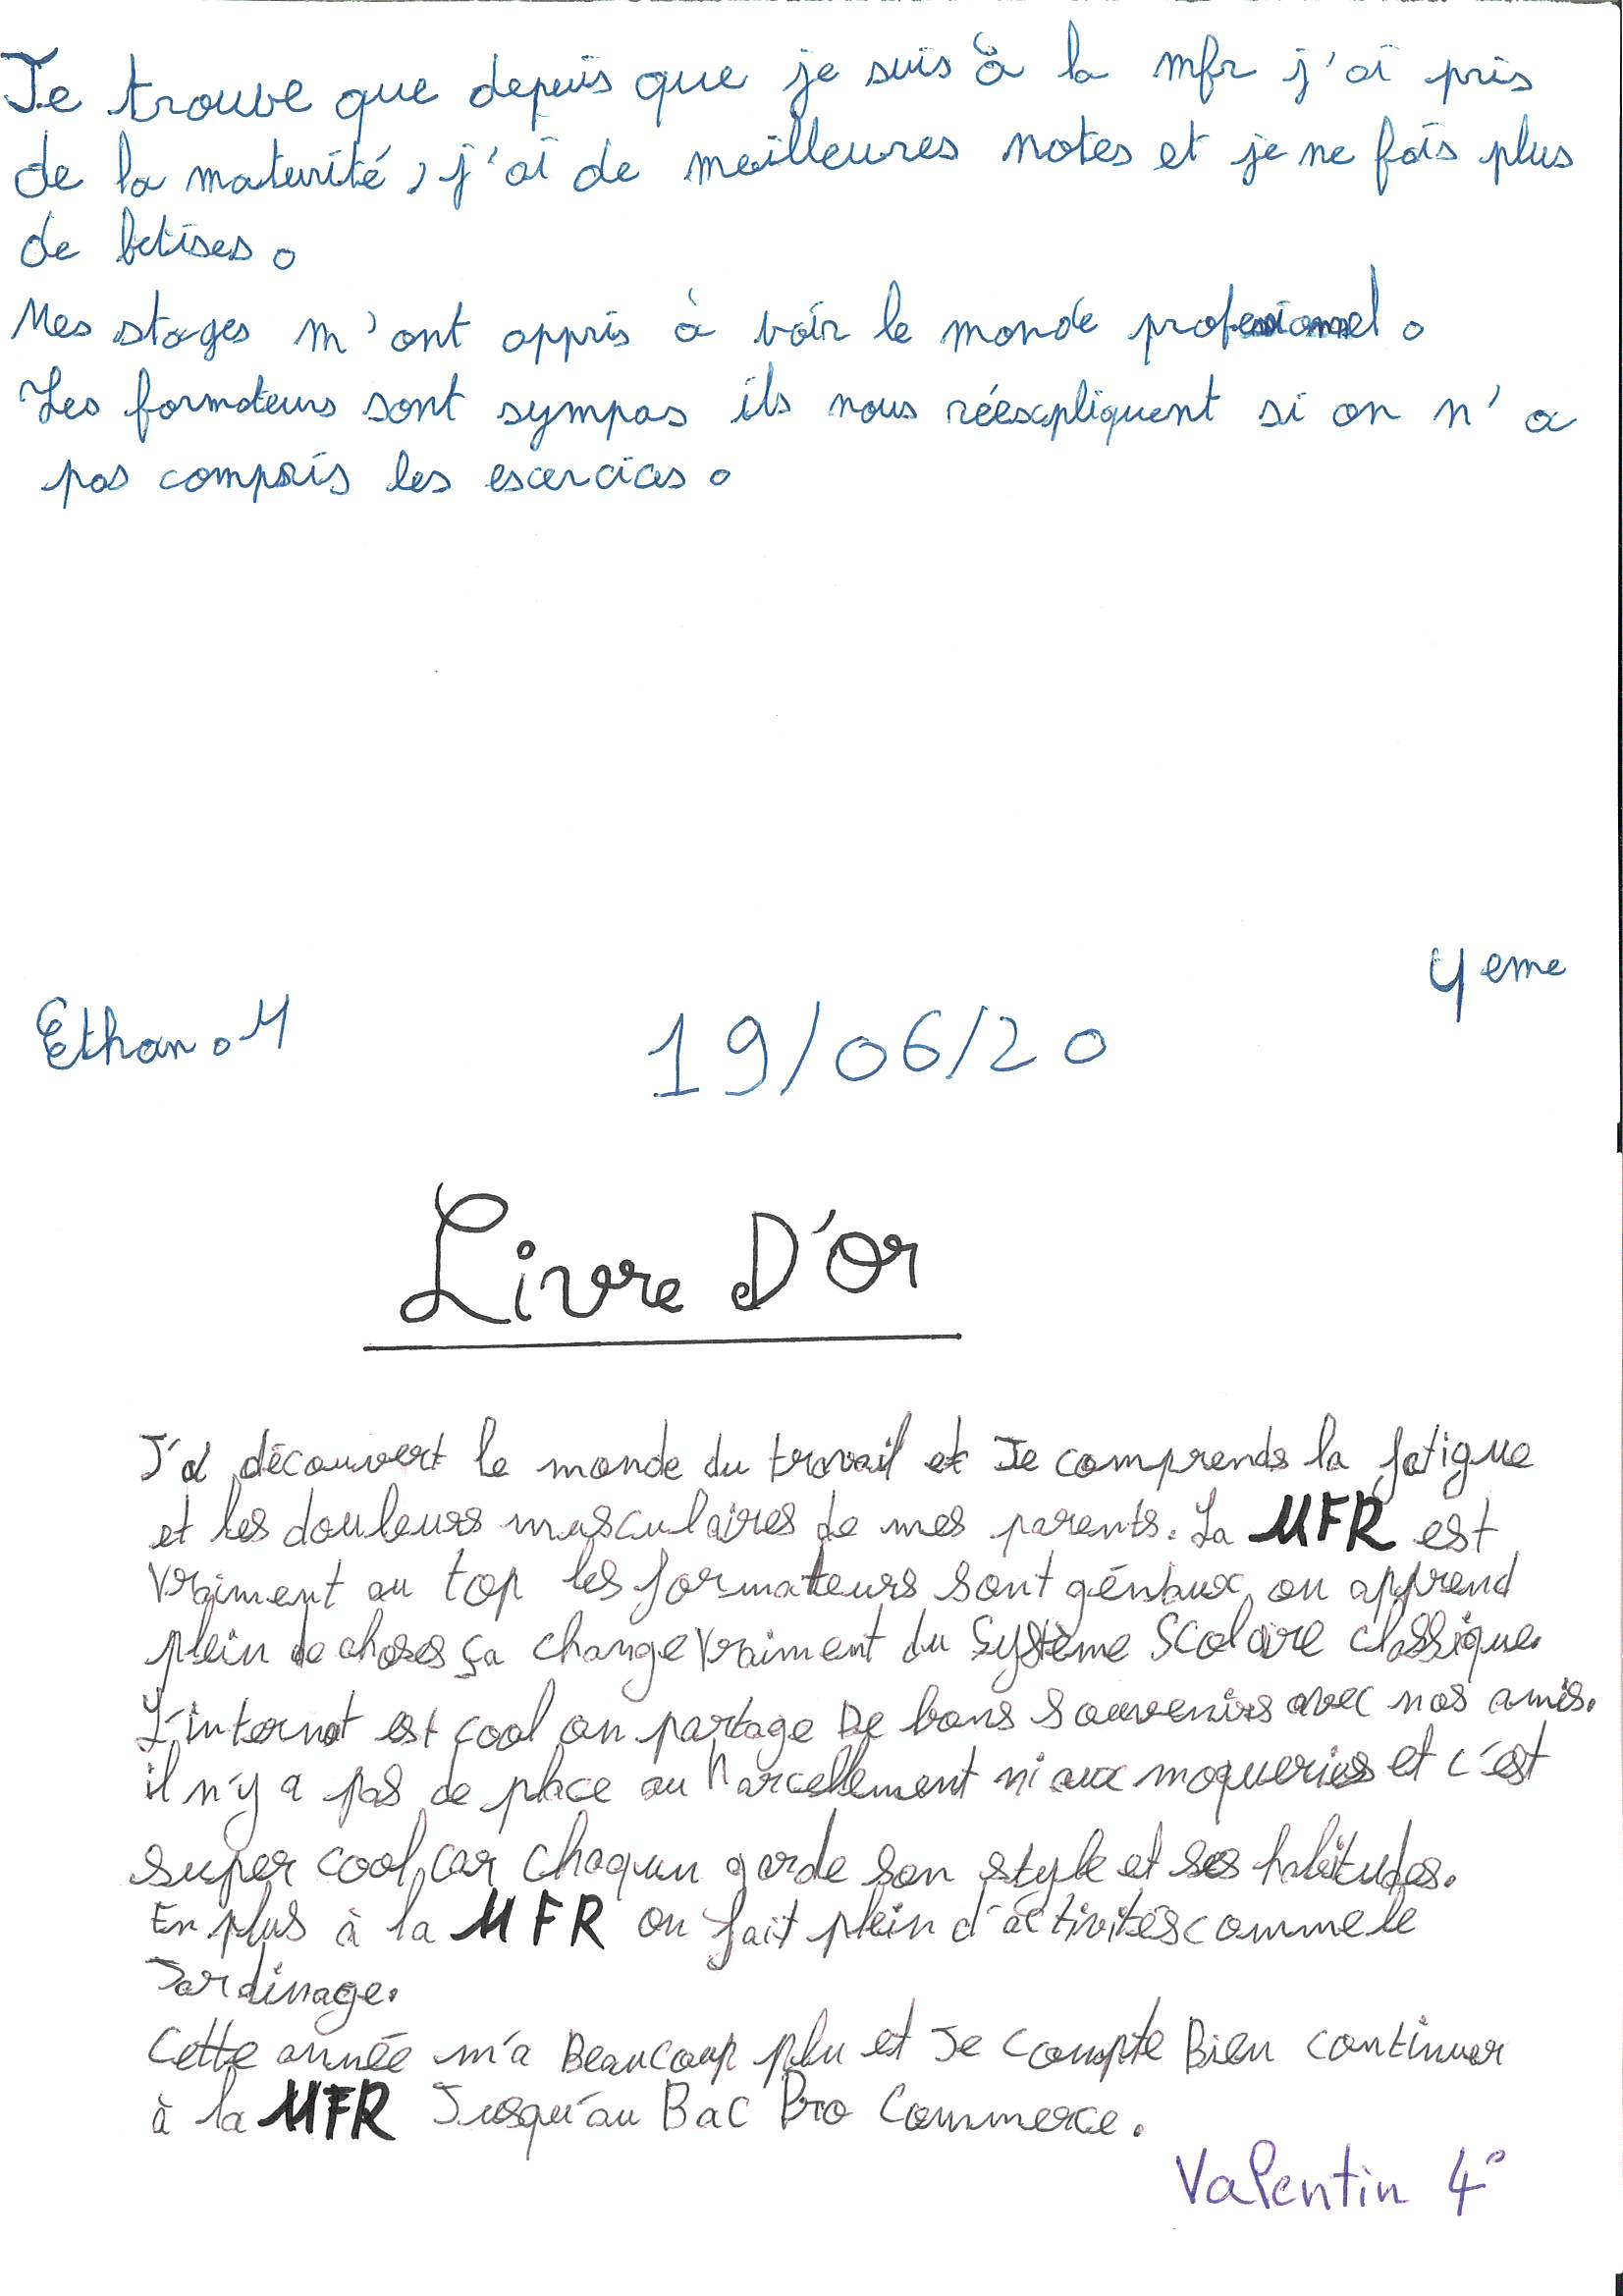 Je trouve que depuis que je suis à la mfr j'ai pris
de la maturité, j'ai de meilleures notes et je ne fais plus
de betises.
Mes stages m'ont appris à voir le monde professionnel.
Les formateurs sont sympas ils nous réexpliquent si on n'a
pas compris les excercices.
4eme
Ethan.M
19/06/20
Livre D'or
J'ai découvert le monde du travail et Je comprends la fatigue
et les douleurs musculaires de mes parents. La MFR est
vraiment au top les formateurs sont géniaux, on apprend
plein de choses ça change vraiment du Système Scolaire classique.
L'internat est cool on partage De bons souvenirs avec nos amis.
il n'y a pas de place au harcellement ni aux moqueries et c'est
super cool, car chaqun garde son style et ses habitudes.
En plus à la MFR on fait plein d'activités comme le
Jardinage.
Cette année m'a Beaucoup plu et Je compte Bien continuer
à la MFR Jusqu'au Bac Pro Commerce.
Valentin 4°